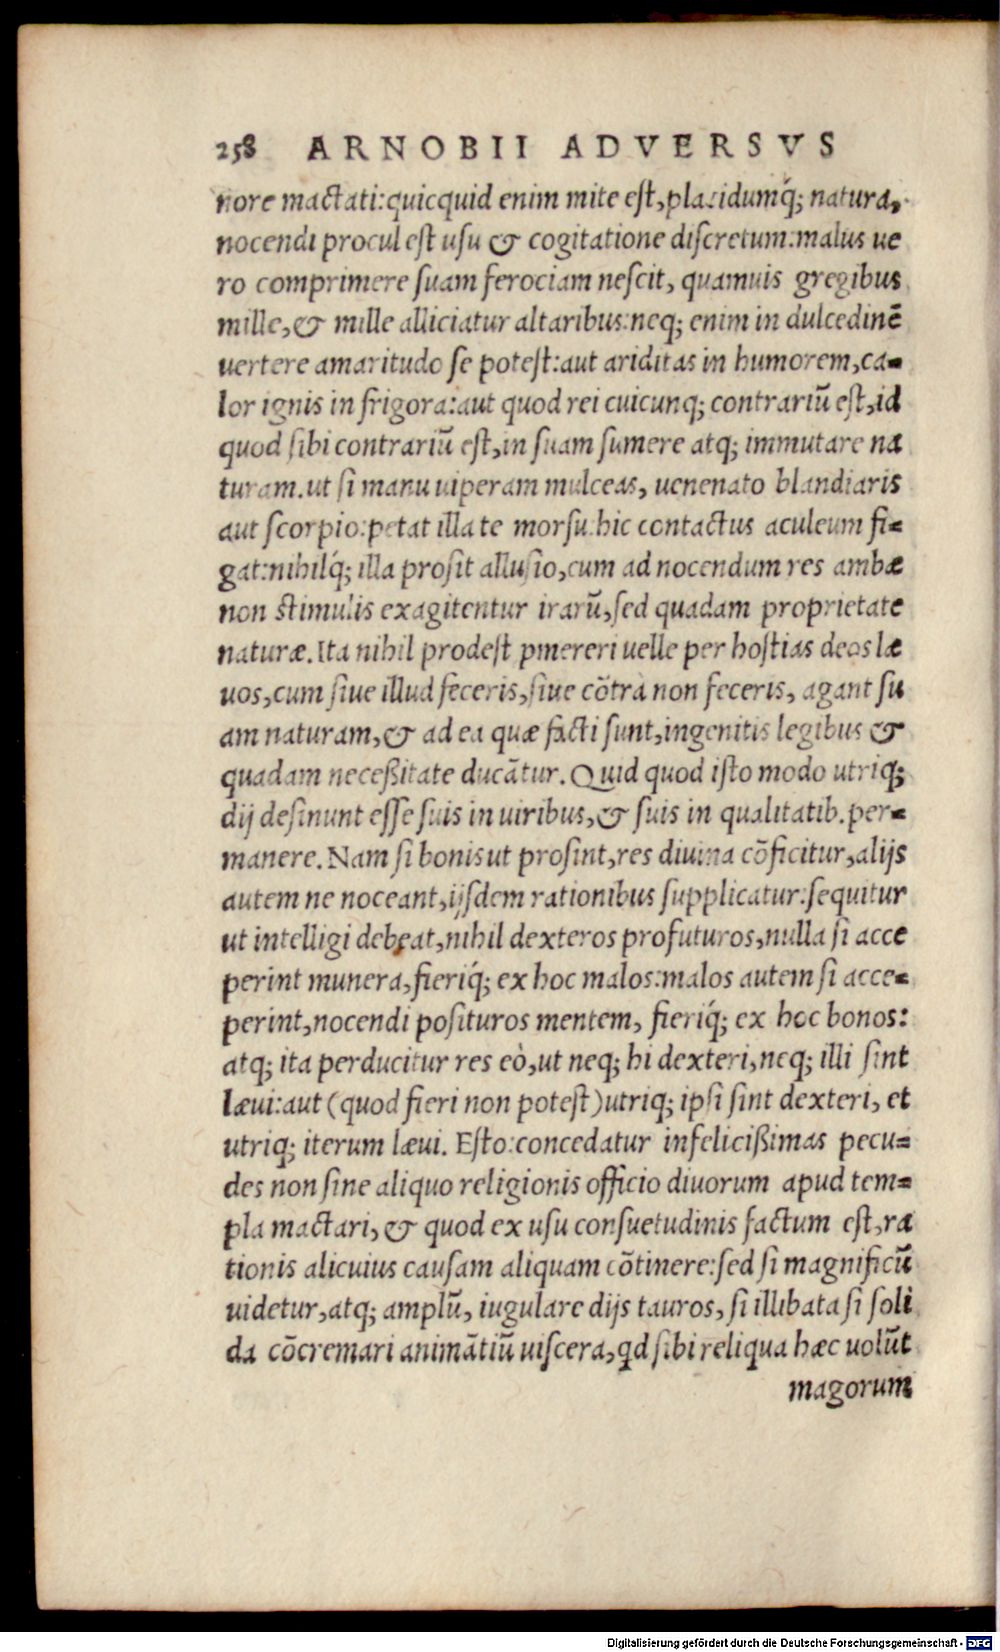 258 ARNOBII ADVERSVS
nore mactati:quicquid enim mite est,placidumq́; natura,
nocendi procul est usu & cogitatione discretum:malus ue
ro comprimere suam ferociam nescit, quamuis gregibus
mille,& mille alliciatur altaribus:neq; enim in dulcedinē
vertere amaritudo se potest:aut ariditas in humorem,ca-
lor ignis in frigora:aut quod rei cuicunq; contrariū est,id
quod sibi contrariū est,in suam sumere atq; immutare na
turam.ut si manu uiperam mulceas, uenenato blandiaris
aut scorpio:petat illa te morsu:hic contactus aculeum fi-
gat:nihilq́; illa prosit allusio,cum ad nocendum res ambæ
non stimulis exagitentur irarū,sed quadam proprietate
naturæ.Ita nihil prodest pmereri uelle per hostias deos læ
uos,cum siue illud feceris,siue cōtrà non feceris, agant su
am naturam,& ad ea quæ facti sunt,ingenitis legibus &
quadam neceßitate ducātur.Quid quod isto modo utriq;
dij desinunt esse suis in uiribus,& suis in qualitatib.per-
manere.Nam si bonis ut prosint,res diuina cōficitur,alijs
autem ne noceant,ijsdem rationibus supplicatur:sequitur
ut intelligi debeat,nihil dexteros profuturos,nulla si acce
perint munera,fieriq́; ex hoc malos:malos autem si acce-
perint,nocendi posituros mentem, fieriq́; ex hoc bonos:
atq; ita perducitur res eò,ut neq; hi dexteri,neq; illi sint
læui:aut (quod fieri non potest)utriq; ipsi sint dexteri, et
utriq; iterum læui. Esto:concedatur infelicißimas pecu-
des non sine aliquo religionis officio diuorum apud tem-
pla mactari,& quod ex usu consuetudinis factum est,ra
tionis alicuius causam aliquam cōtinere:sed si magnificū
uidetur,atq; amplū, iugulare dijs tauros, si illibata si soli
da cōcremari animātiū uiscera,qd sibi reliqua hæc uolūt
magorum
Digitalisierung gefördert durch die Deutsche Forschungsgemeinschaft - DFG